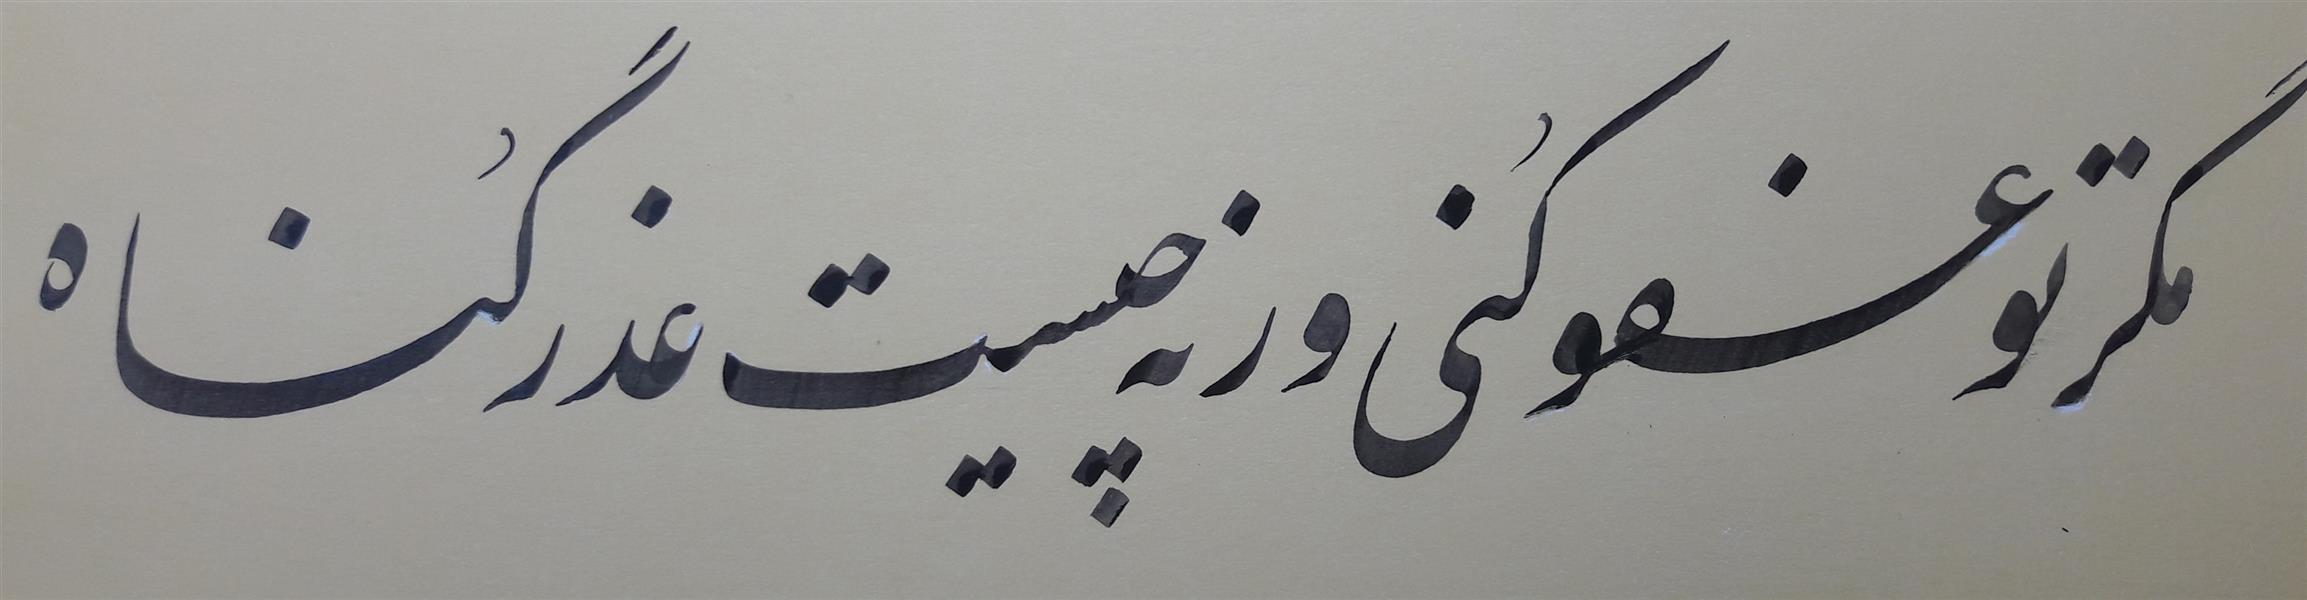 مگر تو عفو کُنی ورنه چیست عذر گُناه